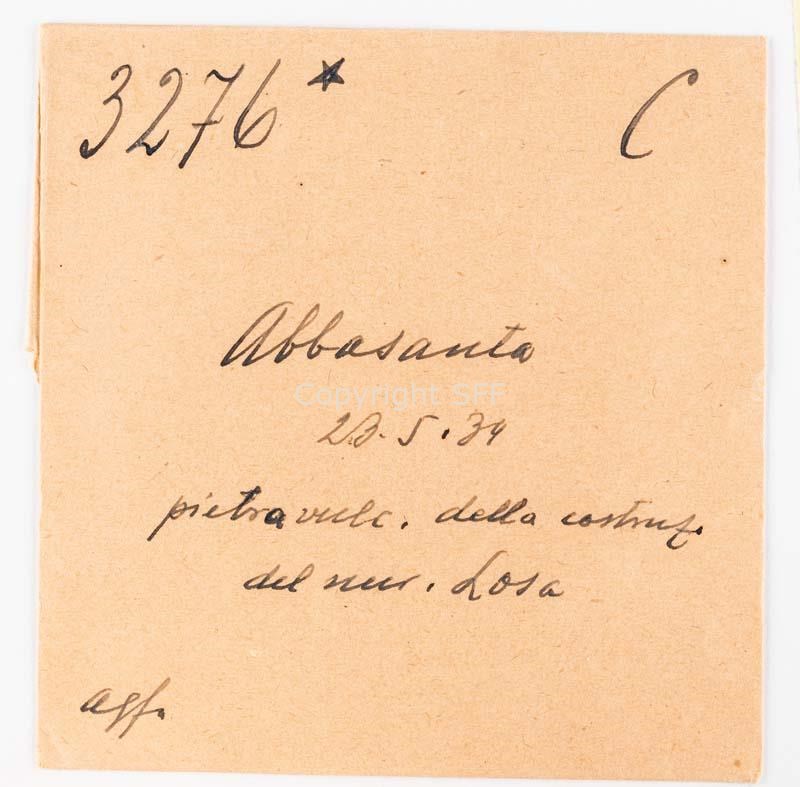 3276* C
Abbasanta
Copyright SFF
23.5.34
pietra vulc. della costruz.
del nur. Losa
agf.